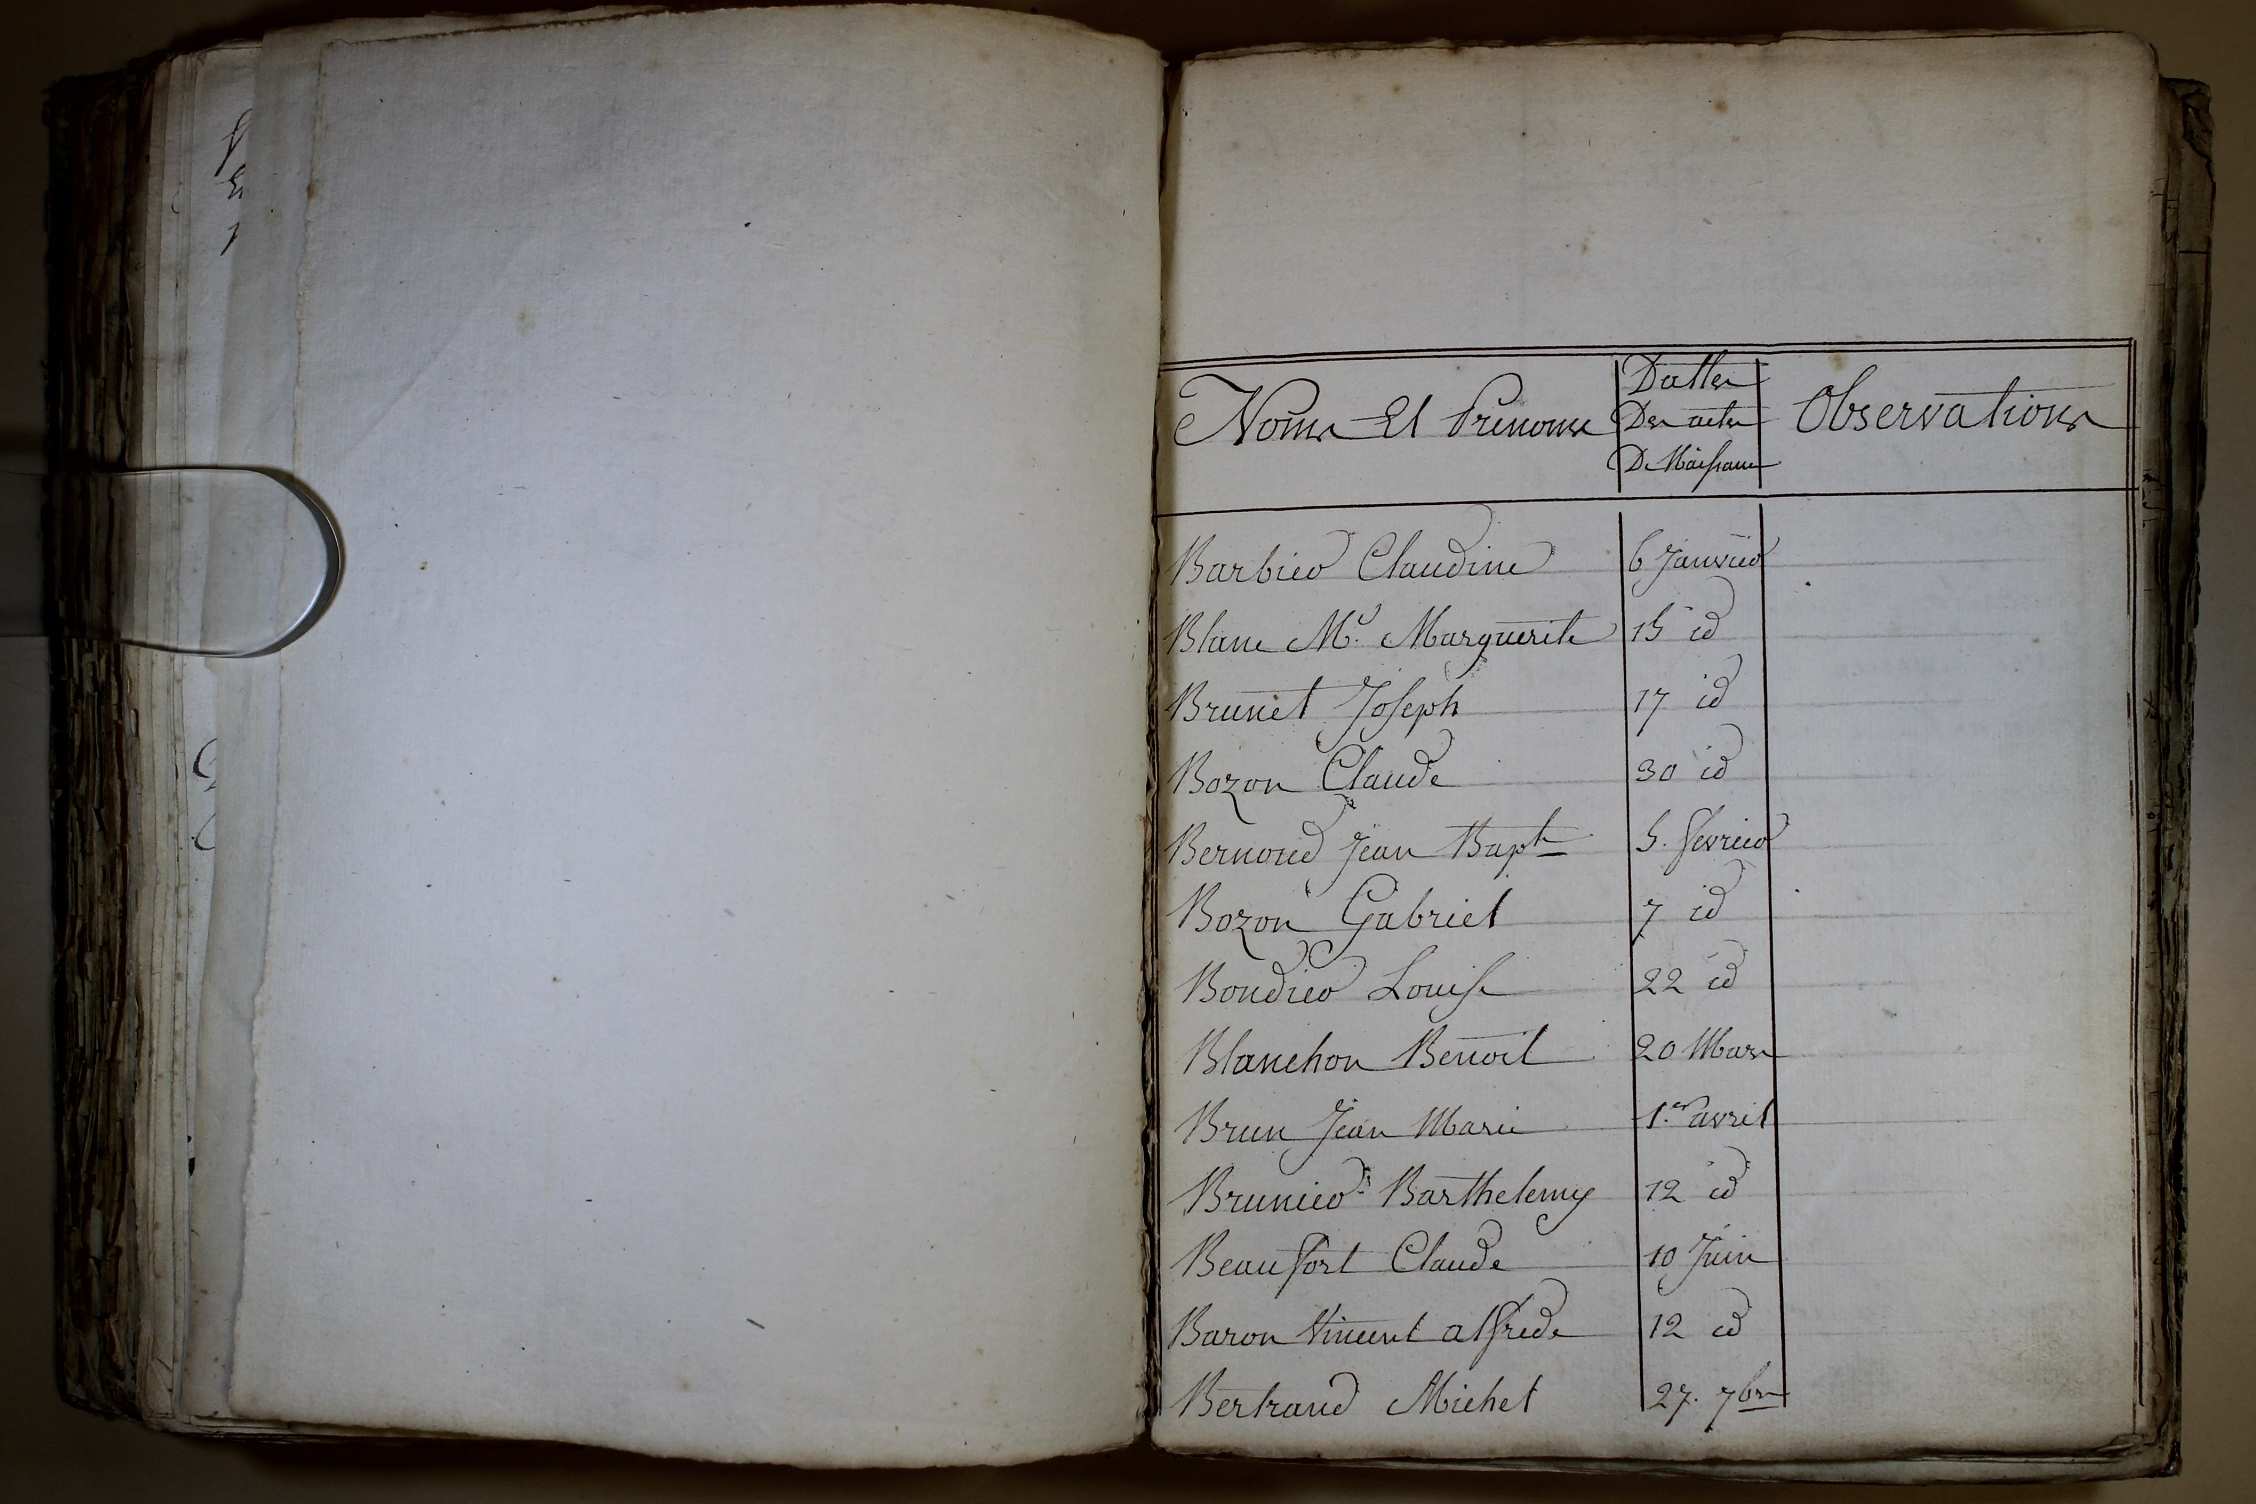 Noms Et Prénoms
Dattes
Des actes
De Naissance
Observations
Barbier Claudine 6 Janvier
Blanc Me. Marguerite 15 id
Brunet Joseph 17 id
Bozon Claude 30 id
Bernoud Jean Bapte 5. fevrier
Bozon Gabriel 7 id
Bondier Louise 22 id
Blanchon Benoit 20 Mars
Brun Jean Marie 1.er avril
Brunier Barthelemy 12 id
Beaufort Claude 10 Juin
Baron Vincent alfrede 12 id
Bertrand Michel 27. 7bre